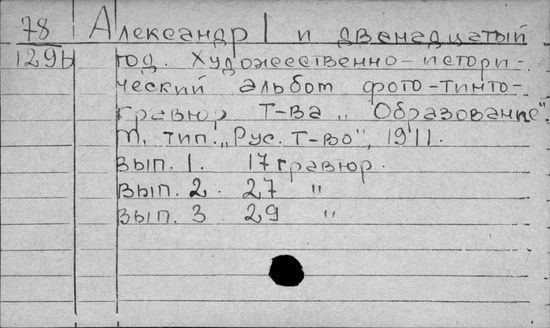 78 Александр I и двенадцатый
129b год. Художественно-истори-
ческий альбом фото-тинто-
гравюр Т-ва "Образование".
М, тип. "Рус. Т-во", 1911.
вып. 1. 17 гравюр.
вып. 2. 27 "
вып. 3 29 "